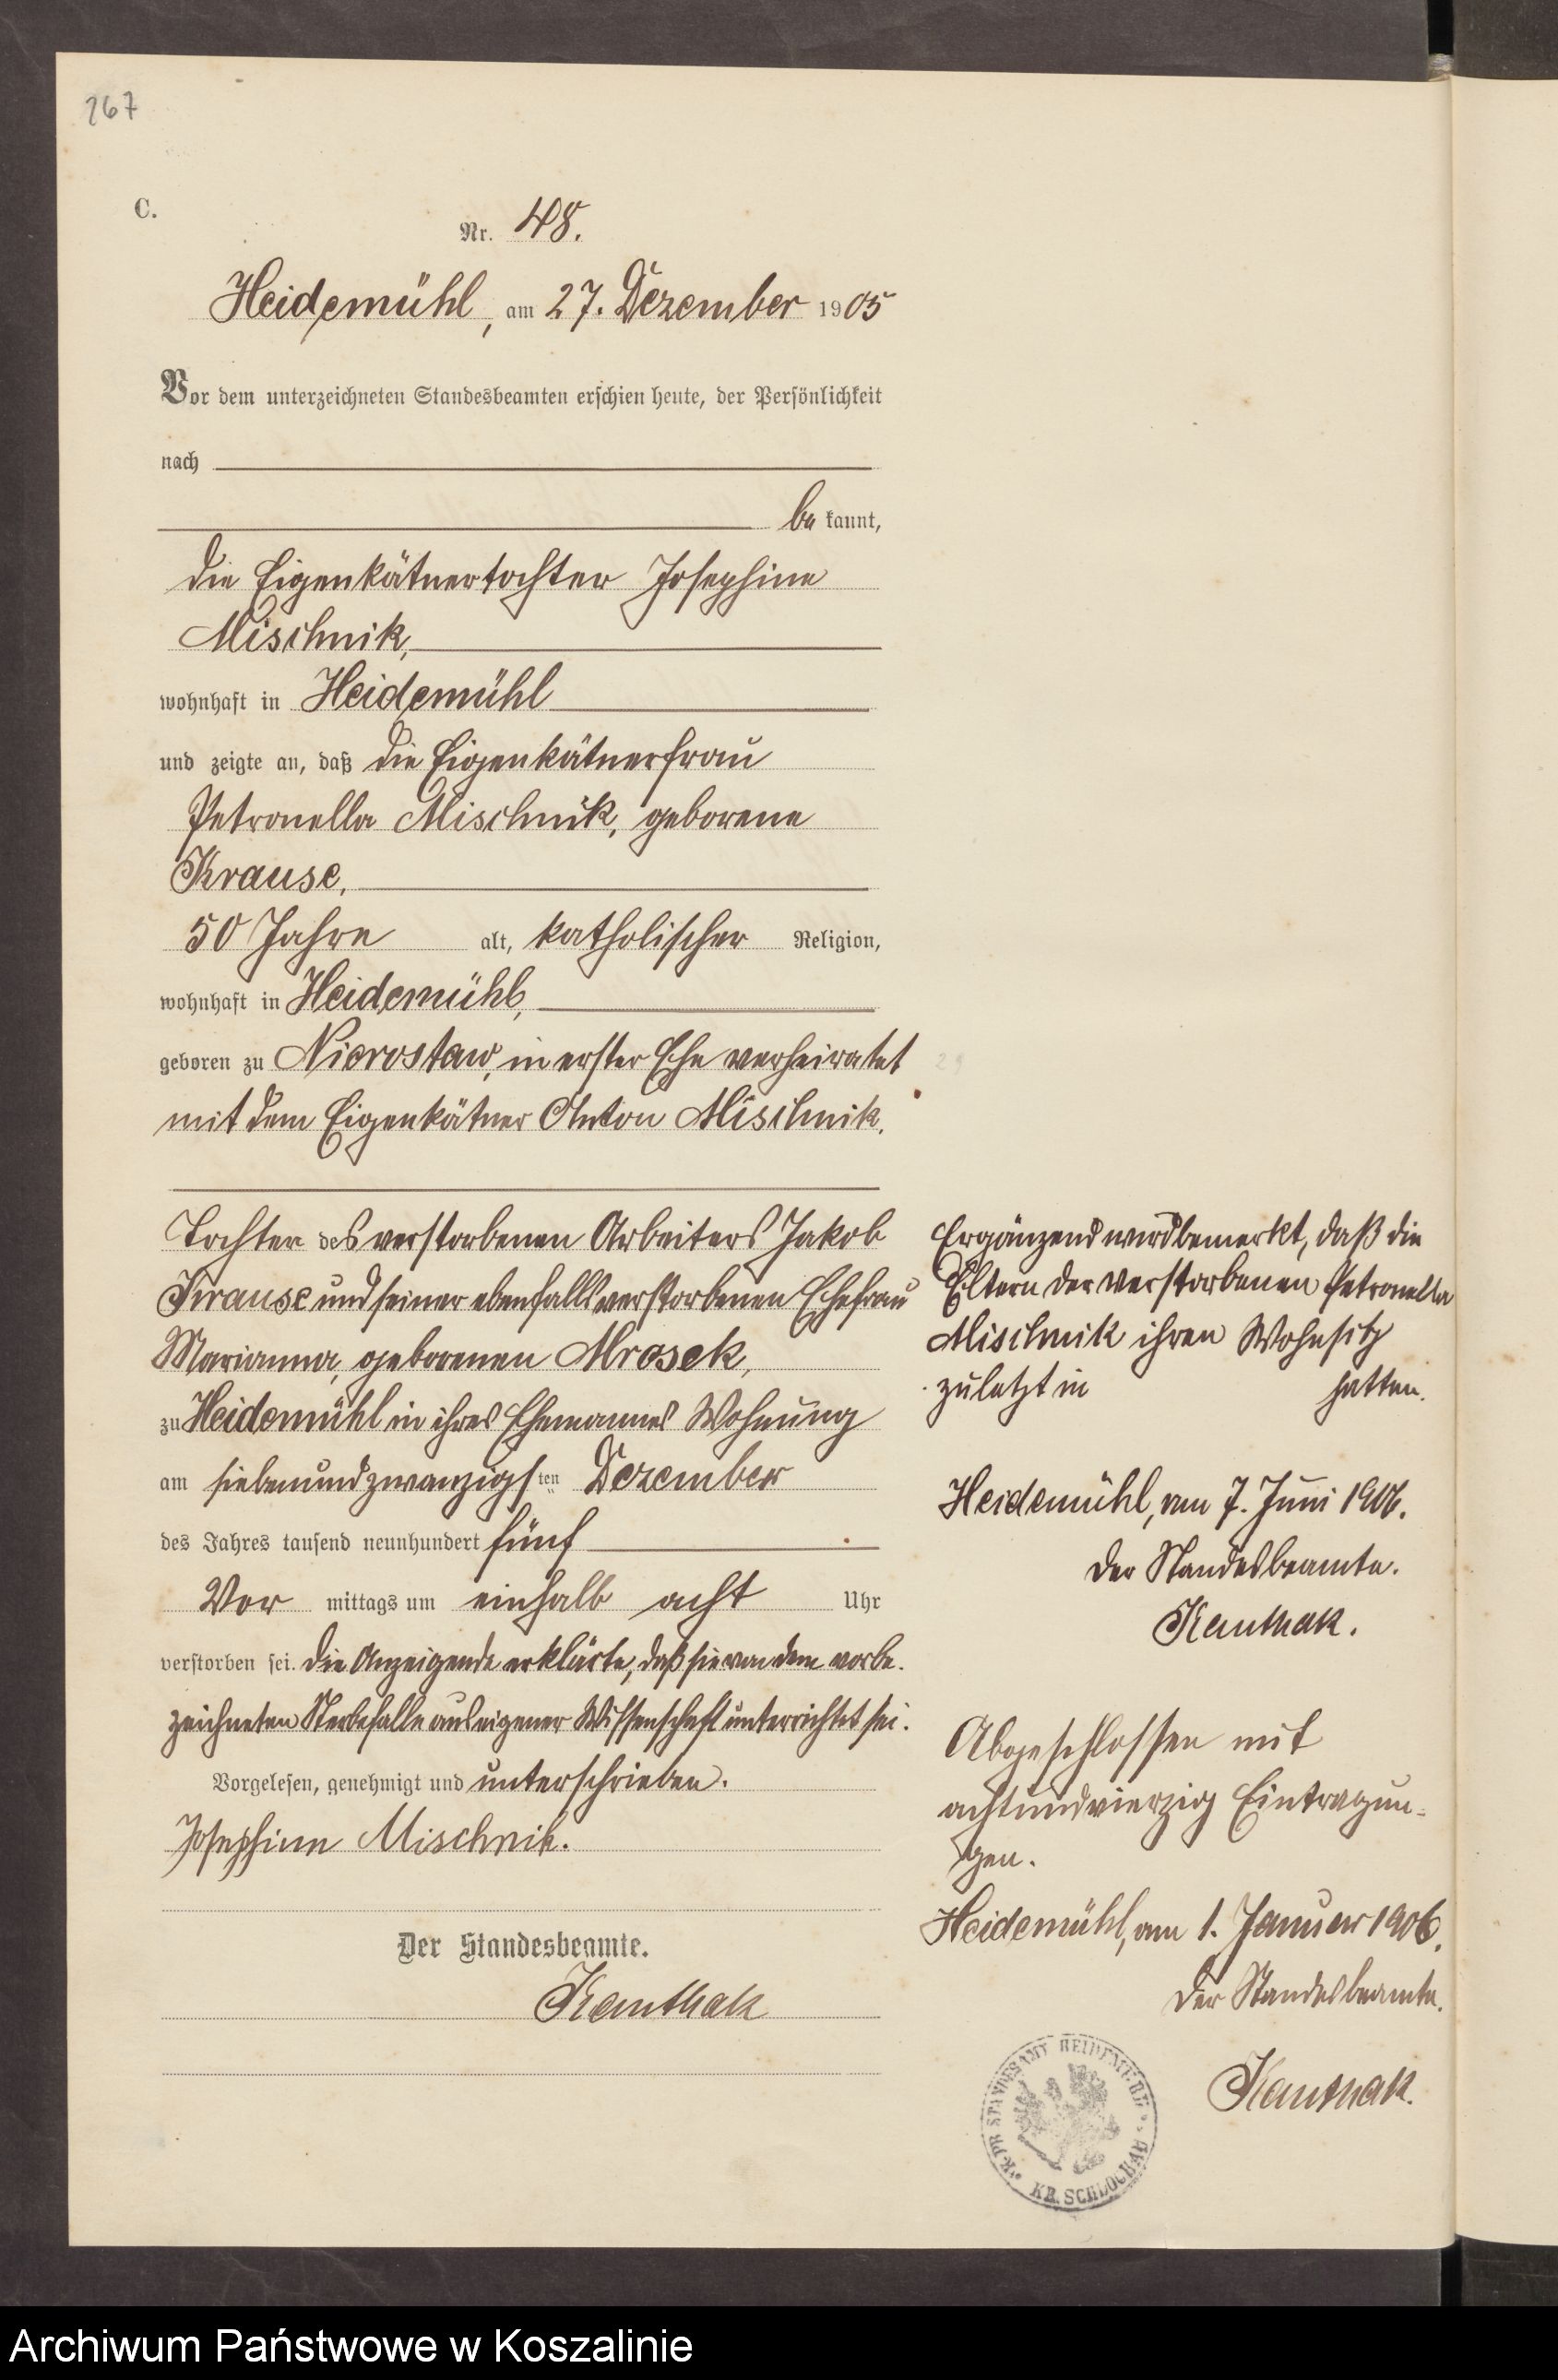 267
C.
Nr. 48.
Heidemühl, am 27. Dezember 1905
Vor dem unterzeichneten Standesbeamten erschien heute, der Persönlichkeit
nach
be kannt,
die Eigenkätnertochter Josephine
Mischnik,
wohnhaft in Heidemühl
und zeigte an, daß die Eigenkätnerfrau
Petronella Mischnik, geborene
Krause,
50 Jahre alt, katholischer Religion,
wohnhaft in Heidemühl,
geboren zu Nierostaw, in erster Ehe verheiratet
mit dem Eigenkätner Anton Mischnik.
Tochter des verstorbenen Arbeiters Jakob
Krause und seiner ebenfalls verstorbenen Ehefrau
Marianna, geborenen Mrosek,
zu Heidemühl in ihres Ehemannes Wohnung
am siebenundzwanzigsten Dezember
des Jahres tausend neunhundert fünf
Vor mittags um einhalb acht Uhr
verstorben sei. Die Anzeigende erklärte, daß sie von dem vorbe-
zeichneten Sterbefalle aus eigener Wissenschaft unterrichtet sei.
Vorgelesen, genehmigt und unterschrieben.
Josephine Mischnik.
Der Standesbeamte.
Kanthak
Ergänzend wird bemerkt, daß die
Eltern der verstorbenen Petronella
Mischnik ihren Wohnsitz
zuletzt in hatten.
Heidemühl, am 7. Juni 1906.
Der Standesbeamte.
Kanthak.
Abgeschlossen mit
achtundvierzig Eintragun-
gen.
Heidemühl, am 1. Januar 1906.
Der Standesbeamte.
Kanthak.
K. PR. STANDESAMT HEIDEMÜHL
KR. SCHLOCHAU
Archiwum Państwowe w Koszalinie